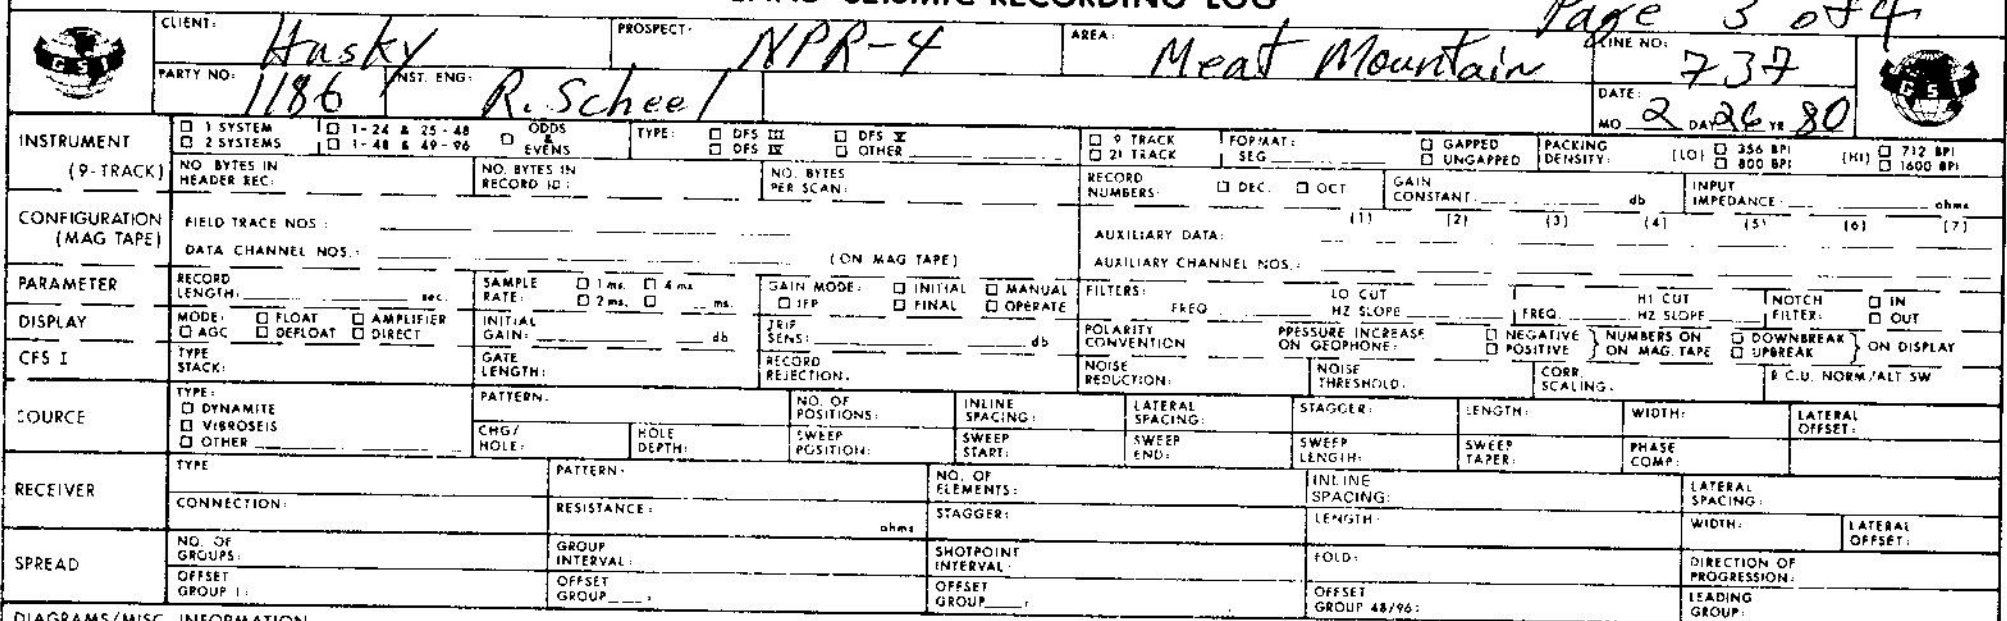 SEISMIC RECORDING LOG
Page 3 of 4
CLIENT: Husky PROSPECT: NPR-4 AREA: Meat Mountain LINE NO: 737
GSI
PARTY NO: 1186 INST. ENG: R. Scheel DATE: MO 2 DAY 26 YR 80
GSI
INSTRUMENT (9-TRACK)
□ 1 SYSTEM □ 1-24 & 25-48 □ ODDS & EVENS TYPE: □ DFS III □ DFS V □ 9 TRACK FORMAT: □ GAPPED PACKING DENSITY: (LO) □ 356 BPI (HI) □ 712 BPI
□ 2 SYSTEMS □ 1-48 & 49-96 □ DFS IV □ OTHER □ 21 TRACK SEG □ UNGAPPED □ 800 BPI □ 1600 BPI
NO. BYTES IN HEADER REC: NO. BYTES IN RECORD ID: NO. BYTES PER SCAN: RECORD NUMBERS: □ DEC. □ OCT GAIN CONSTANT: db INPUT IMPEDANCE: ohms
CONFIGURATION (MAG TAPE)
FIELD TRACE NOS: AUXILIARY DATA: (1) (2) (3) (4) (5) (6) (7)
DATA CHANNEL NOS.: (ON MAG TAPE) AUXILIARY CHANNEL NOS.:
PARAMETER RECORD LENGTH: sec. SAMPLE RATE: □ 1 ms. □ 4 ms □ 2 ms. □ ms. GAIN MODE: □ INITIAL □ MANUAL □ IFP □ FINAL □ OPERATE FILTERS: FREQ LO CUT HZ SLOPE FREQ. HI CUT HZ SLOPE NOTCH FILTER: □ IN □ OUT
DISPLAY MODE: □ FLOAT □ AMPLIFIER □ AGC □ DEFLOAT □ DIRECT INITIAL GAIN: db TRIP SENS: db POLARITY CONVENTION PRESSURE INCREASE ON GEOPHONE: □ NEGATIVE □ POSITIVE } NUMBERS ON MAG. TAPE □ DOWNBREAK □ UPBREAK } ON DISPLAY
CFS I TYPE STACK: GATE LENGTH: RECORD REJECTION: NOISE REDUCTION: NOISE THRESHOLD: CORR. SCALING: R.C.U. NORM/ALT SW
SOURCE TYPE: □ DYNAMITE □ VIBROSEIS □ OTHER
PATTERN: NO. OF POSITIONS: INLINE SPACING: LATERAL SPACING: STAGGER: LENGTH: WIDTH: LATERAL OFFSET:
CHG/HOLE: HOLE DEPTH: SWEEP POSITION: SWEEP START: SWEEP END: SWEEP LENGTH: SWEEP TAPER: PHASE COMP:
RECEIVER TYPE PATTERN: NO. OF ELEMENTS: INLINE SPACING: LATERAL SPACING:
CONNECTION: RESISTANCE: ohms STAGGER: LENGTH: WIDTH: LATERAL OFFSET:
SPREAD NO. OF GROUPS: GROUP INTERVAL: SHOTPOINT INTERVAL: FOLD: DIRECTION OF PROGRESSION:
OFFSET GROUP 1: OFFSET GROUP___: OFFSET GROUP___: OFFSET GROUP 48/96: LEADING GROUP:
DIAGRAMS/MISC. INFORMATION